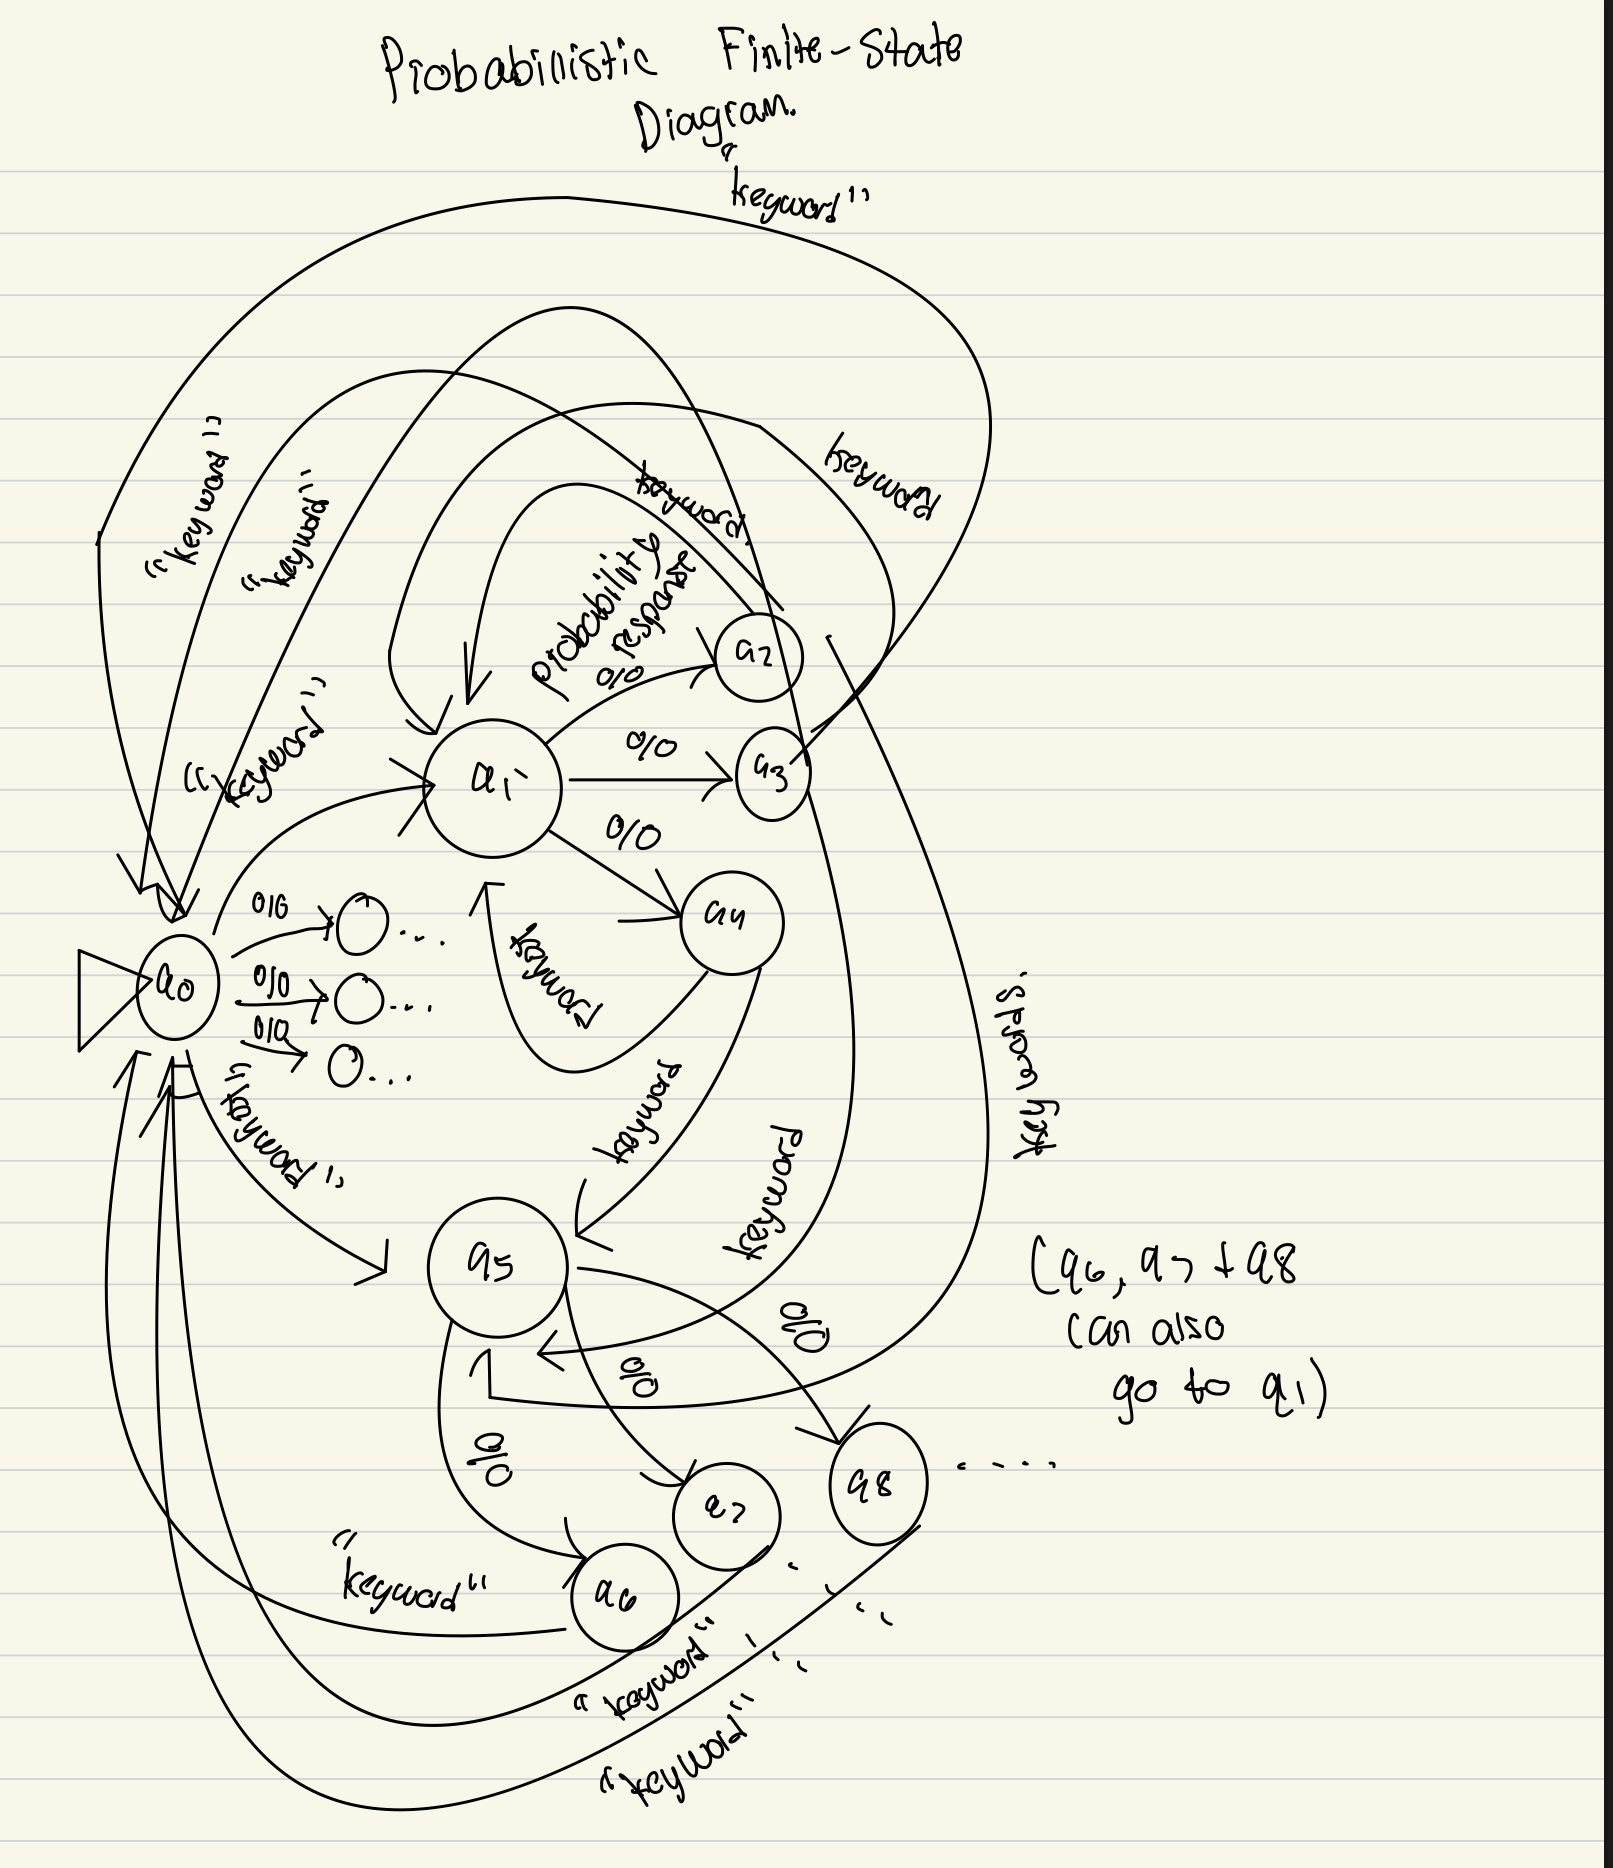 Probabilistic Finite-State
Diagram.
"keyword"
"keyword"
"keyword"
keyword
keyword
probability
response
0/0
q2
"keyword"
0/0
q3
q1
0/0
q4
0/0
q0
0/0
0/0
keyword
keywords.
"keyword"
keyword
keyword
q5
(q6, q7 + q8
can also
go to q1)
0/0
0/0
0/0
q8
q7
q6
"keyword"
"keyword"
"keyword"